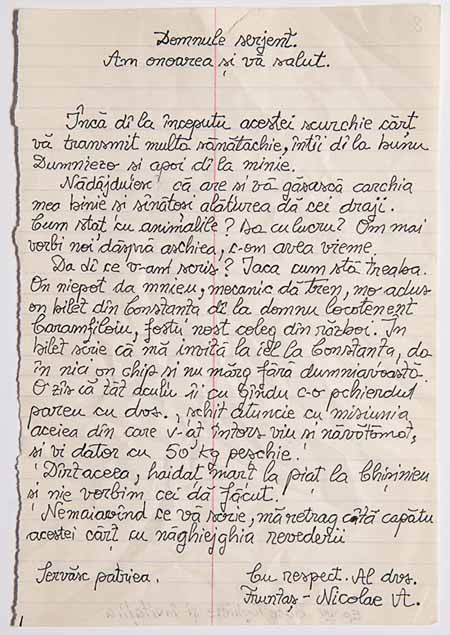 Domnule serjent.
Am onoarea și vă salut.
Încă dî la începutu acestei scurchie cărț
vă transmit multă sănătachie, întîi dî la bunu
Dumniezo si apoi dî la minie.
Nădăjduiesc că are si vă găsască carchia
mea binie si sinătosi alăturea dă cei draji.
Cum staț cu animalile? Da cu lucru? Om mai
vorbi noi dăspră aschiea, c-om avea vieme.
Da dî ce v-am scris? Iaca cum stă treaba.
On niepot da mnieu, mecanic dă tren, mo adus
on bilet din Constanța dî la domnu locotenent
Caramfiloiu, fostu nost coleg din război. In
bilet scrie că mă invită la iel la Constanța, da
în nici on chip si nu mărg fără dumniavoastă.
O zîs că tăt dculu îi cu gîndu c-o pchierdut
pareu cu dvs., schit atuncie cu misiunia
aceiea din care v-ăt întors viu si năvătămat,
si vi dator cu 50 kg peschie.
Dintaceea, haidaț marț la piaț la Chișinieu
și nie vorbim cei dă făcut.
Nemaiavînd ce vă scrie, mă retrag cătă capătu
acestei cărț cu năghiejghia revederii
Servăsc patriea.
Cu respect. Al dvs.
Fruntaș - Nicolae A.